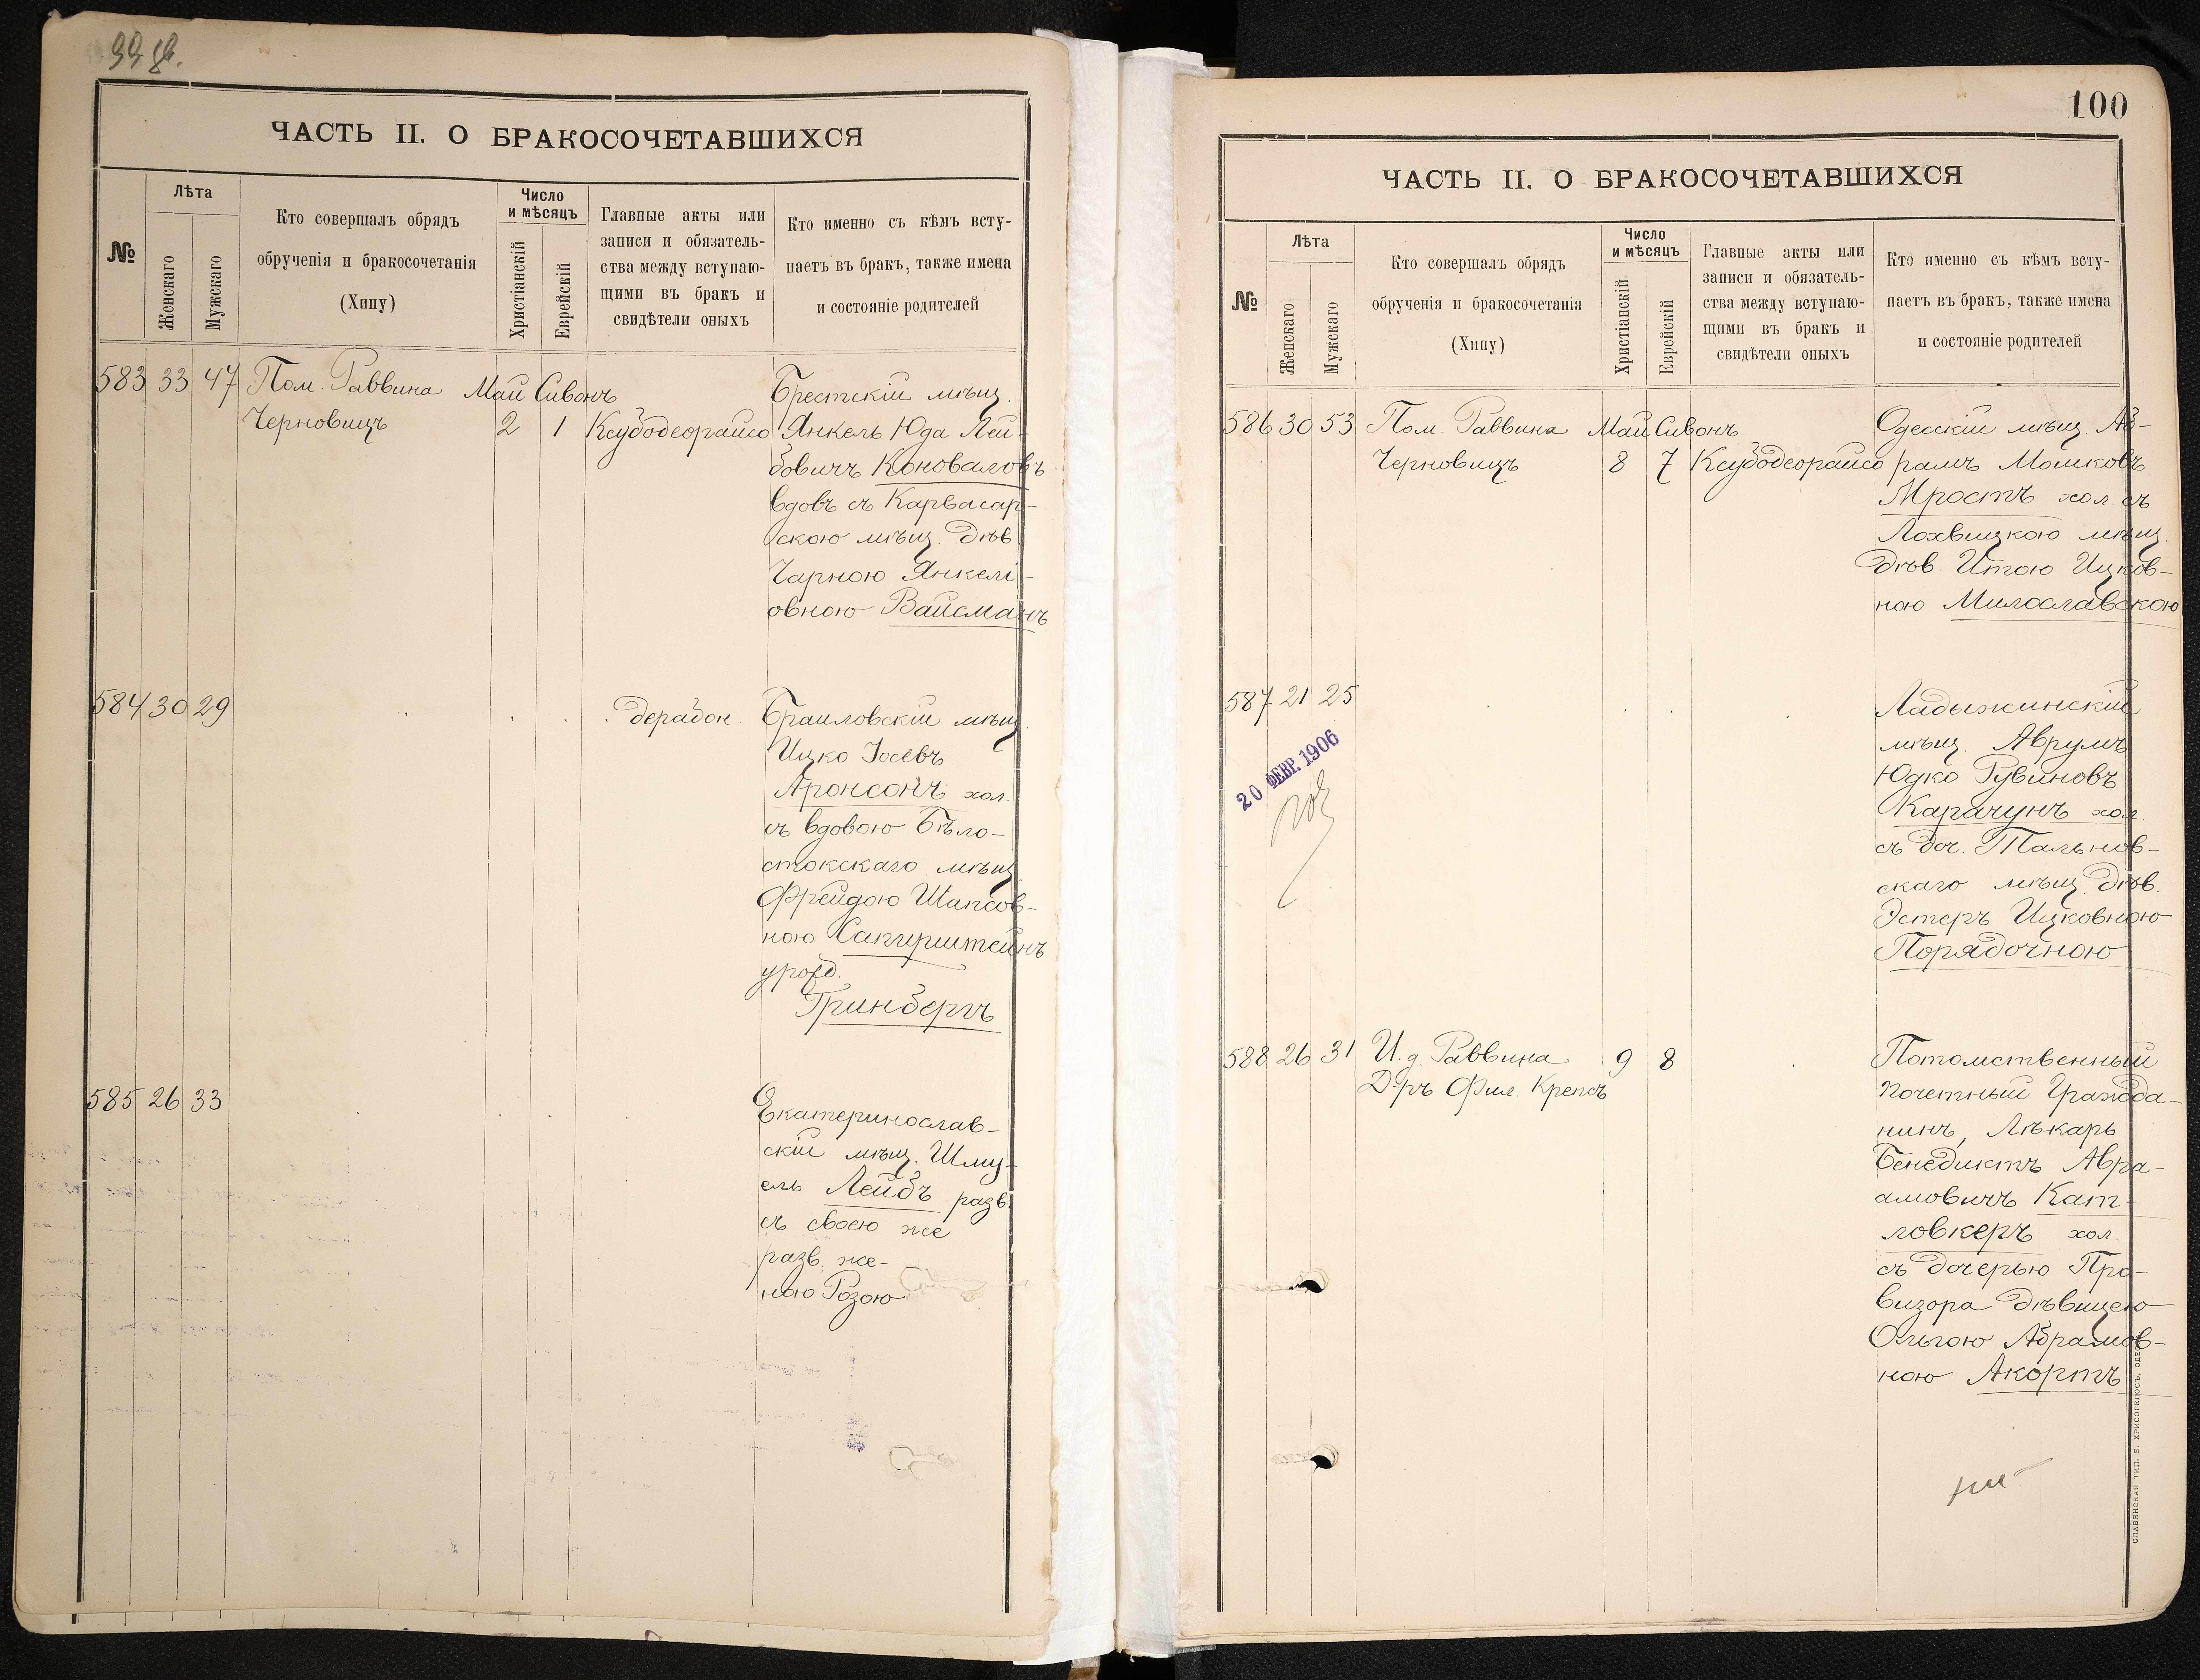 ЧАСТЬ II. О БРАКОСОЧЕТАВШИХСЯ
№
Лѣта
Женскаго
Мужскаго
Кто совершалъ обрядъ
обрученія и бракосочетанія
(Хипу)
Число
и мѣсяцъ
Христіанскій
Еврейскій
Главные акты или
записи и обязатель-
ства между вступаю-
щими въ бракъ и
свидѣтели оныхъ
Кто именно съ кѣмъ всту-
паетъ въ бракъ, также имена
и состояніе родителей
583 33 47 Пом. Раввина Май Сивонъ Брестскій мѣщ.
Черновицъ 2 1 Ксубодеорайсо Янкель Юда Лей-
бовичъ Коноваловъ
вдовъ съ Карвасар-
скою мѣщ. дѣв.
Чарною Янкел-
овною Вайсманъ
584 30 29 дерабон. Браиловскій мѣщ.
Ицко Іосевъ
Аронсонъ хол.
съ вдовою Бѣло-
стокскаго мѣщ.
Фрейдою Шапсов-
ною Сапирштейнъ
урожд.
Гринбергъ
585 26 33 Екатеринослав-
скій мѣщ. Шму-
ель Лейбъ разв.
съ своею же
разв. же-
ною Розою
100
ЧАСТЬ II. О БРАКОСОЧЕТАВШИХСЯ
№
Лѣта
Женскаго
Мужскаго
Кто совершалъ обрядъ
обрученія и бракосочетанія
(Хипу)
Число
и мѣсяцъ
Христіанскій
Еврейскій
Главные акты или
записи и обязатель-
ства между вступаю-
щими въ бракъ и
свидѣтели оныхъ
Кто именно съ кѣмъ всту-
паетъ въ бракъ, также имена
и состояніе родителей
586 30 53 Пом. Раввина Май Сивонъ Одесскій мѣщ. Аб-
Черновицъ 8 7 Ксубодеорайсо рамъ Мошковъ
Мростъ хол. съ
Лохвицкою мѣщ.
дѣв. Итою Ицков-
ною Милославскою
587 21 25 Ладыжинскій
мѣщ. Аврумъ
Юдко Рувиновъ
Карачунъ хол.
съ доч. Тальнов-
скаго мѣщ. дѣв.
Эстеръ Ицковною
Порядочною
20 ФЕВР. 1906
588 26 31 И. д. Раввина 9 8 Потомственный
Д-ръ Фил. Крепсъ почетный Гражда-
нинъ, Лѣкарь
Бенедиктъ Авра-
амовичъ Кат-
ловкеръ хол.
съ дочерью Про-
визора дѣвицею
Ольгою Абрамов-
ною Акортъ
СЛАВЯНСКАЯ ТИП. Е. ХРИСОГЕЛОСЪ, ОДЕС